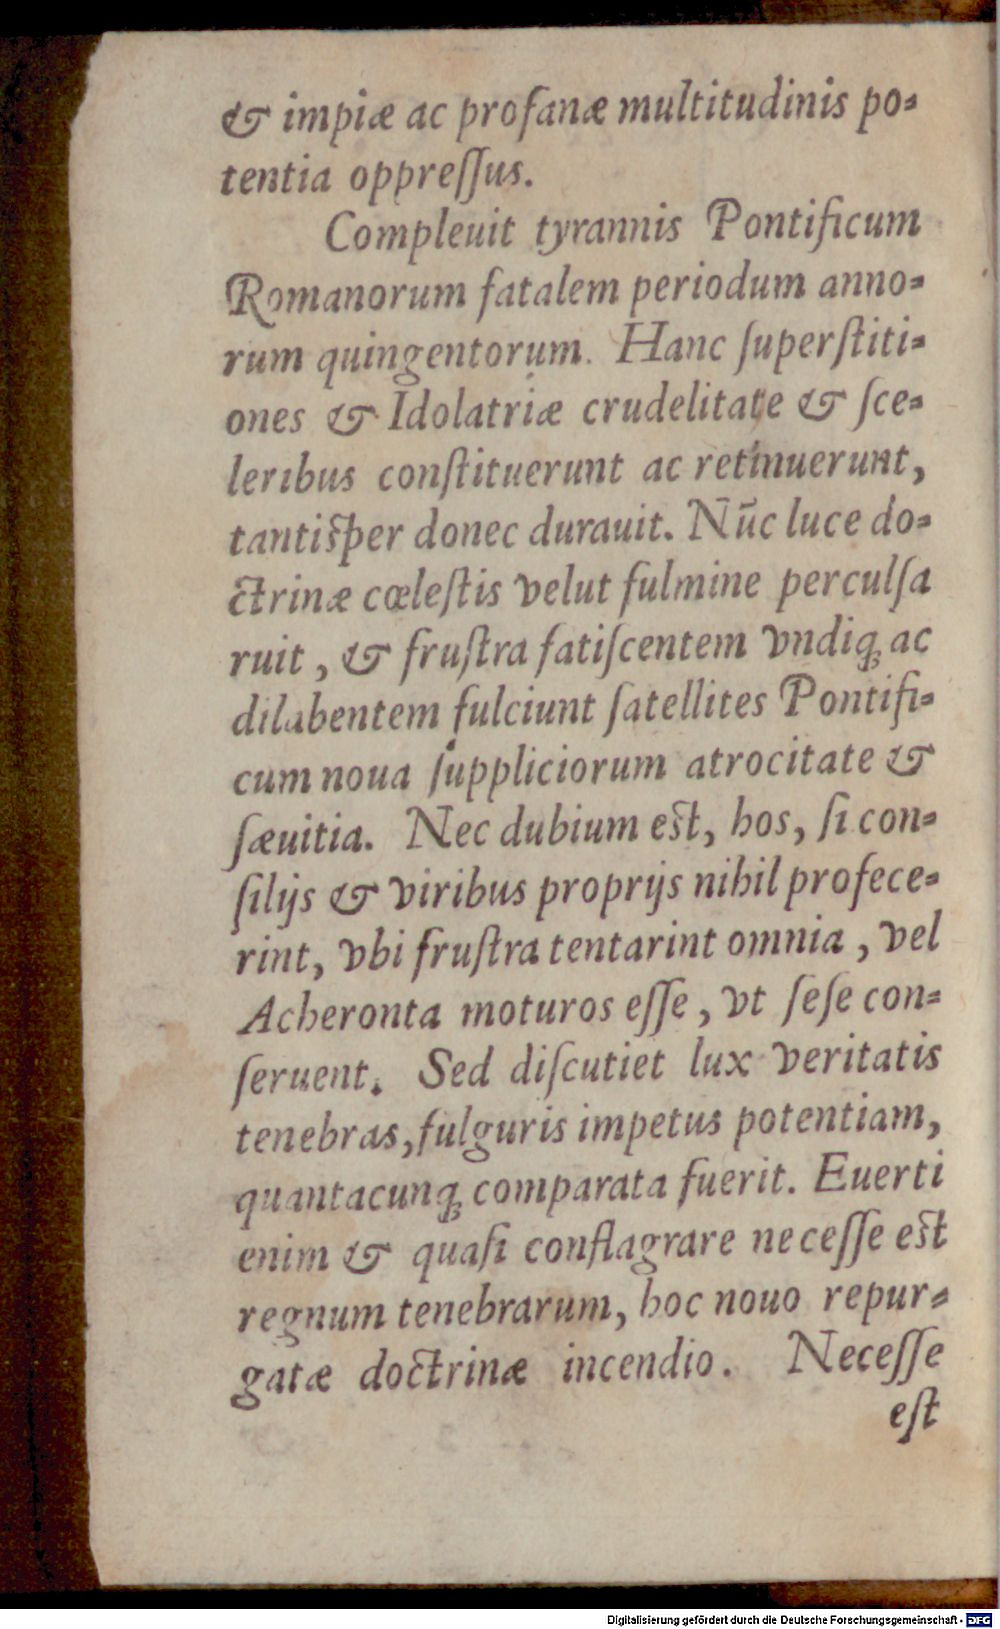 & impiæ ac profanæ multitudinis po-
tentia oppreſſus.
Compleuit tyrannis Pontificum
Romanorum fatalem periodum anno-
rum quingentorum. Hanc ſuperſtiti-
ones & Idolatriæ crudelitate & ſce-
leribus conſtituerunt ac retinuerunt,
tantiſper donec durauit. Nūc luce do-
ctrinæ cœleſtis velut fulmine perculſa
ruit, & fruſtra fatiſcentem vndiqꝫ ac
dilabentem fulciunt ſatellites Pontifi-
cum noua ſuppliciorum atrocitate &
ſæuitia. Nec dubium eſt, hos, ſi con-
ſilijs & viribus proprijs nihil profece-
rint, vbi fruſtra tentarint omnia, vel
Acheronta moturos eſſe, vt ſeſe con-
ſeruent. Sed diſcutiet lux veritatis
tenebras, fulguris impetus potentiam,
quantacunqꝫ comparata fuerit. Euerti
enim & quaſi conflagrare neceſſe eſt
regnum tenebrarum, hoc nouo repur-
gatæ doctrinæ incendio. Neceſſe
eſt
Digitalisierung gefördert durch die Deutsche Forschungsgemeinschaft - DFG